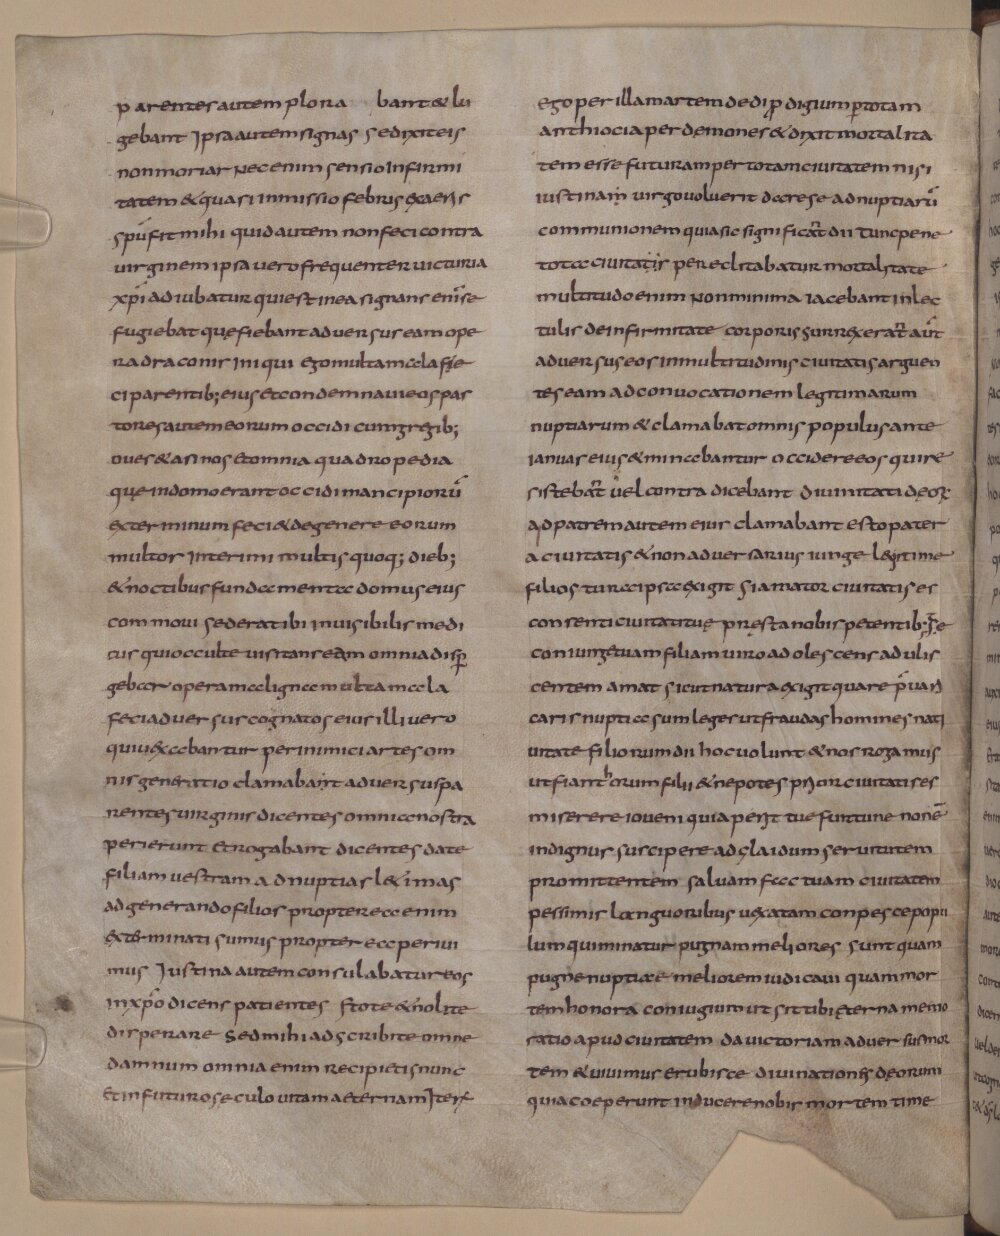 parentes autem plora bant & lu
gebant Ipsa autem signas se dixit eis
non moriar Nec enim sensio Infirmi
tatem & quasi inmissio febris & aeris
spūs fit mihi quid autem non feci contra
virginem ipsa vero frequenter victuria
xp̄i adiubatur qui est in ea signans enī se
fugiebat quę fiebant adversus eam ope
ra draconis Iniqui Ego multa mala fie
ci parentib; eius Et condemnavi eos pas
tores autem eorum occidi cum gregib;
oves & asinos Et omnia quadropedia
quę in domo erant occidi mancipiorū
exterminum feci & de genere eorum
multos Interimi multis quoq; dieb;
& noctibus fundamenta domus eius
commovi sederat ibi Invisibilis medi
cus qui occulte visitans eam omnia disp
gebar opera maligna multa mala
feci adversus cognatos eius illi vero
qui vexabantur per inimici artes om
nis generatio clamabant adversus pa
rentes virginis dicentes omnia nostra
perierunt Et rogabant dicentes date
filiam vestram ad nuptias l&imas
ad generando filios propter ea enim
exterminati sumus propter ea perivi
mus Iustina autem consulabatur eos
in xp̄o dicens patientes stote & nolite
disperare Sed mihi adscribite omne
damnum omnia enim recipietis nunc
Et in futuro seculo vitam aeternam Iter
ego per illam artem dedi pdigium p totam
anthiocia per demones & dixit mortalita
tem esse futuram per totam civitatem nisi
iustinam virgo voluerit dare se ad nuptiarū
communionem quia sic significat dii Tunc pene
tota civitatis pereclitabatur mortalitate
multitudo enim Non minima Iacebant in lec
tulis de infirmitate corporis surrexerat aūt
adversus eos in multitudinis civitatis arguen
tes eam ad convocationem legitimarum
nuptiarum & clamabat omnis populus ante
ianuas eius & minabantur occidere eos qui re
sistebat vel contra dicebant divinitati deor
Ad patrem autem eius clamabant esto pater
a civitatis & non adversarius iunge legitime
filios tuta ipsa exigit si amator civitatis es
consenti civitati tuę pręsta nobis petentib; Se
coniunge tuam filiam viro adolescens adulis
centem amat sicut natura exigit quare pvan
caris nuptia sum leges ut fraudas homines nati
vitate filiorum dii hoc volunt & nos rogamus
ut fiant horum filii & nepotes pricor civitatis es
miserere iovem quia perit tue funtune nonē
indignus suscipere ad claidum servitutem
promittentem salvam fac tuam civitatem
pessimis languoribus vexatam conpesce popu
lum qui minatur pugnam meliores sunt quam
pugne nuptiae meliorem iudicavi quam mor
tem honora coniugium ut sit tibi Eterna memo
ratio apud civitatem da victoriam adversus mor
tem & vivimus erubisce divinationis deorum
quia coeperunt inducere nobis mortem time